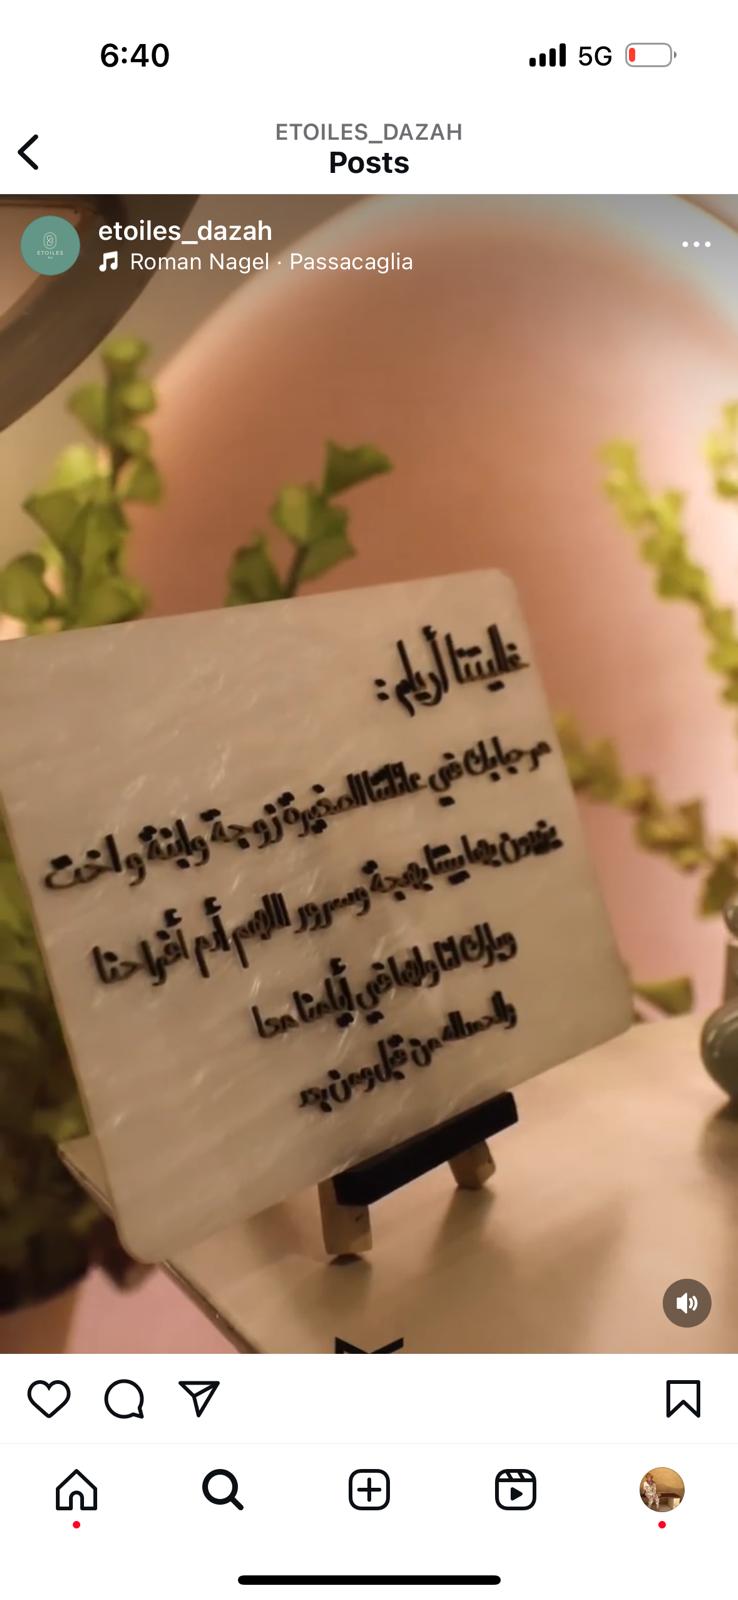 6:40
5G
ETOILES_DAZAH
Posts
etoiles_dazah
Roman Nagel · Passacaglia
ETOILES
غاليتنا أريام:
مرحبا بك في عائلتنا الصغيرة زوجة وابنة واخت
يزدن بها بيتنا بهجة وسرور اللهم أدم أفراحنا
وبارك لنا ولها في أيامنا معا
والحمدلله من قبل ومن بعد